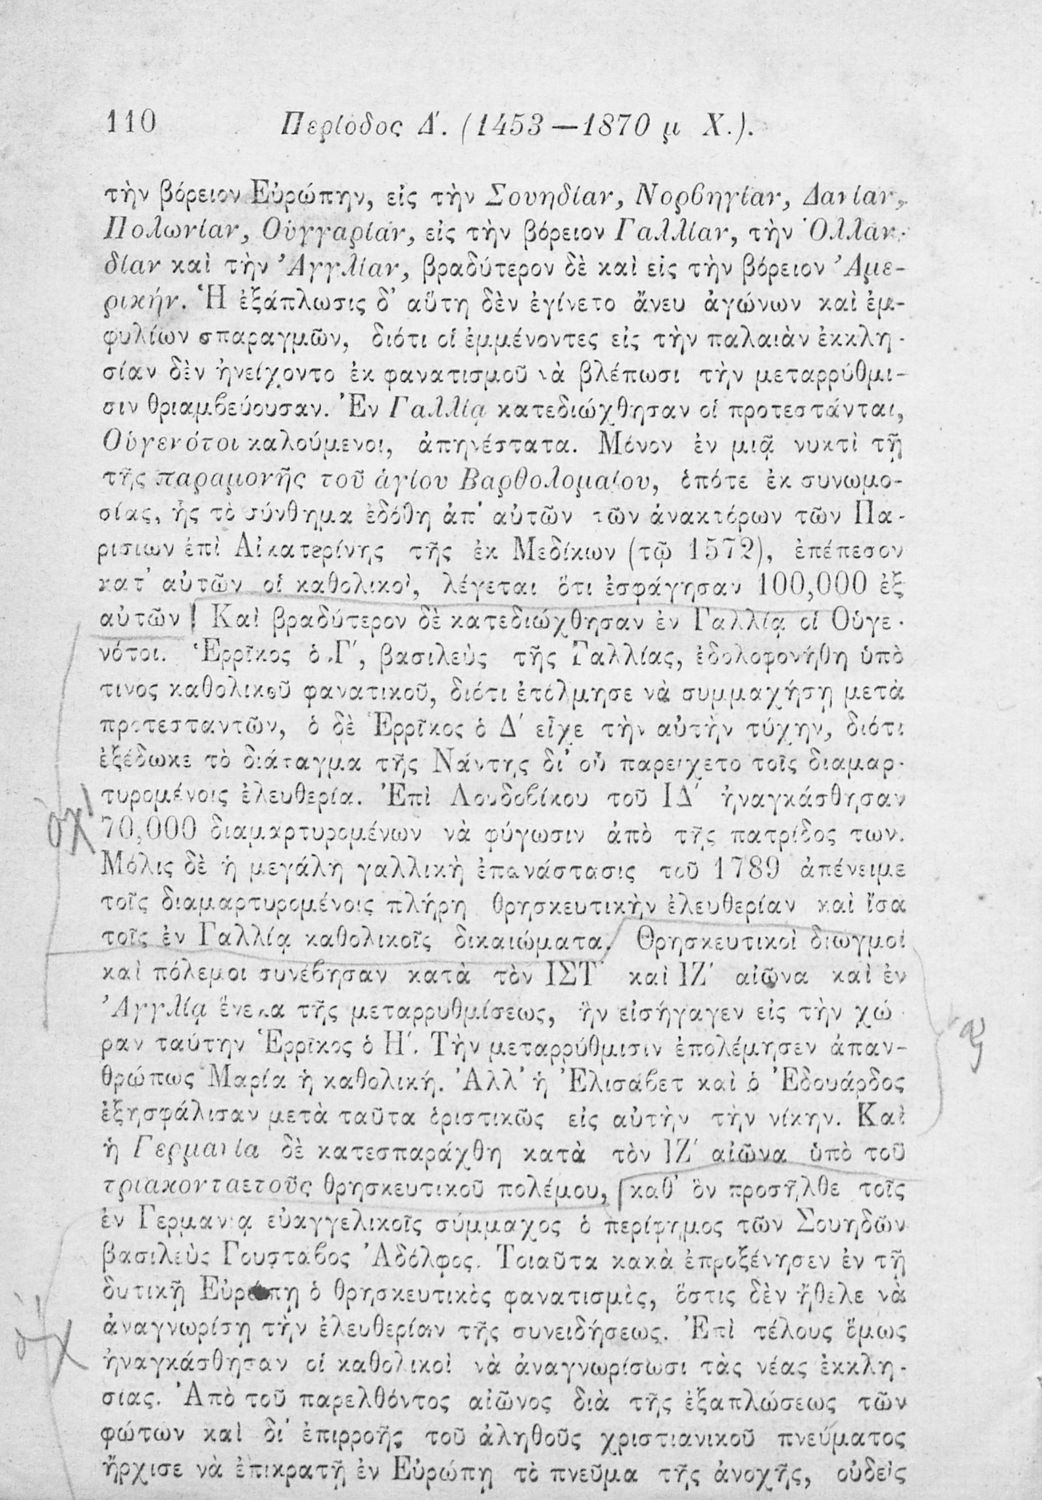 110 Περίοδος Δ΄. (1453—1870 μ Χ.).
τὴν βόρειον Εὐρώπην, εἰς τὴν Σουηδίαν, Νορβηγίαν, Δανίαν,
Πολωνίαν, Οὑγγαρίαν, εἰς τὴν βόρειον Γαλλίαν, τὴν Ὁλλαν-
δίαν καὶ τὴν Ἀγγλίαν, βραδύτερον δὲ καὶ εἰς τὴν βόρειον Ἀμε-
ρικήν. Ἡ ἐξάπλωσις δ' αὕτη δὲν ἐγίνετο ἄνευ ἀγώνων καὶ ἐμ-
φυλίων σπαραγμῶν, διότι οἱ ἐμμένοντες εἰς τὴν παλαιὰν ἐκκλη-
σίαν δὲν ἠνείχοντο ἐκ φανατισμοῦ νὰ βλέπωσι τὴν μεταρρύθμι-
σιν θριαμβεύουσαν. Ἐν Γαλλίᾳ κατεδιώχθησαν οἱ προτεστάνται,
Οὑγενότοι καλούμενοι, ἀπηνέστατα. Μόνον ἐν μιᾷ νυκτὶ τῇ
τῆς παραμονῆς τοῦ ἁγίου Βαρθολομαίου, ὁπότε ἐκ συνωμο-
σίας, ἧς τὸ σύνθημα ἐδόθη ἀπ' αὐτῶν τῶν ἀνακτόρων τῶν Πα-
ρισίων ἐπὶ Αἰκατερίνης τῆς ἐκ Μεδίκων (τῷ 1572), ἐπέπεσον
κατ' αὐτῶν οἱ καθολικοί, λέγεται ὅτι ἐσφάγησαν 100,000 ἐξ
αὐτῶν! Καὶ βραδύτερον δὲ κατεδιώχθησαν ἐν Γαλλίᾳ οἱ Οὑγε-
νότοι. Ἑρρῖκος ὁ Γ΄, βασιλεὺς τῆς Γαλλίας, ἐδολοφονήθη ὑπὸ
τινος καθολικοῦ φανατικοῦ, διότι ἐτόλμησε νὰ συμμαχήσῃ μετὰ
προτεσταντῶν, ὁ δὲ Ἑρρῖκος ὁ Δ΄ εἶχε τὴν αὐτὴν τύχην, διότι
ἐξέδωκε τὸ διάταγμα τῆς Νάντης δι' οὗ παρείχετο τοῖς διαμαρ-
τυρομένοις ἐλευθερία. Ἐπὶ Λουδοβίκου τοῦ ΙΔ΄ ἠναγκάσθησαν
ὄχι 70,000 διαμαρτυρομένων νὰ φύγωσιν ἀπὸ τῆς πατρίδος των.
Μόλις δὲ ἡ μεγάλη γαλλικὴ ἐπανάστασις τοῦ 1789 ἀπένειμε
τοῖς διαμαρτυρομένοις πλήρη θρησκευτικὴν ἐλευθερίαν καὶ ἴσα
τοῖς ἐν Γαλλίᾳ καθολικοῖς δικαιώματα. Θρησκευτικοὶ διωγμοὶ
καὶ πόλεμοι συνέβησαν κατὰ τὸν ΙΣΤ΄ καὶ ΙΖ΄ αἰῶνα καὶ ἐν
Ἀγγλίᾳ ἕνεκα τῆς μεταρρυθμίσεως, ἣν εἰσήγαγεν εἰς τὴν χώ-
ραν ταύτην Ἑρρῖκος ὁ Η΄. Τὴν μεταρρύθμισιν ἐπολέμησεν ἀπαν-
θρώπως Μαρία ἡ καθολική. Ἀλλ' ἡ Ἐλισάβετ καὶ ὁ Ἐδουάρδος
ἐξησφάλισαν μετὰ ταῦτα ὁριστικῶς εἰς αὐτὴν τὴν νίκην. Καὶ
ἡ Γερμανία δὲ κατεσπαράχθη κατὰ τὸν ΙΖ΄ αἰῶνα ὑπὸ τοῦ
τριακονταετοῦς θρησκευτικοῦ πολέμου, καθ' ὃν προσῆλθε τοῖς
ἐν Γερμανίᾳ εὐαγγελικοῖς σύμμαχος ὁ περίφημος τῶν Σουηδῶν
βασιλεὺς Γουσταβος Ἀδόλφος. Τοιαῦτα κακὰ ἐπροξένησεν ἐν τῇ
δυτικῇ Εὐρώπῃ ὁ θρησκευτικὸς φανατισμὸς, ὅστις δὲν ἤθελε νὰ
ἀναγνωρίσῃ τὴν ἐλευθερίαν τῆς συνειδήσεως. Ἐπὶ τέλους ὅμως
ὄχι ἠναγκάσθησαν οἱ καθολικοὶ νὰ ἀναγνωρίσωσι τὰς νέας ἐκκλη-
σίας. Ἀπὸ τοῦ παρελθόντος αἰῶνος διὰ τῆς ἐξαπλώσεως τῶν
φώτων καὶ δι' ἐπιρροῆς τοῦ ἀληθοῦς χριστιανικοῦ πνεύματος
ἤρχισε νὰ ἐπικρατῇ ἐν Εὐρώπῃ τὸ πνεῦμα τῆς ἀνοχῆς, οὐδεὶς